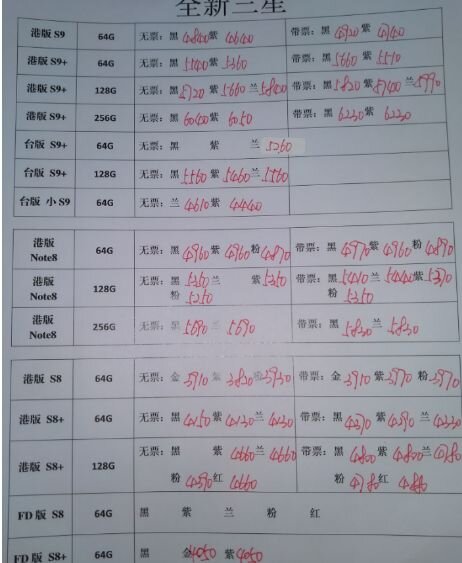 全新三星
港版 S9 64G 无票：黑 4840 紫 4640 带票：黑 4920 紫 4740
港版 S9+ 64G 无票：黑 5540 紫 5360 带票：黑 5660 紫 5510
港版 S9+ 128G 无票：黑 5720 紫 5660 兰 5840 带票：黑 5820 紫 5740 兰 5990
港版 S9+ 256G 无票：黑 6040 紫 6050 带票：黑 6230 紫 6230
台版 S9+ 64G 无票：黑 紫 兰 5260
台版 S9+ 128G 无票：黑 5560 紫 5460 兰 5560
台版 小 S9 64G 无票：兰 4610 紫 4440
港版 Note8 64G 无票：黑 4960 紫 4960 粉 4870 带票：黑 4970 紫 4960 粉 4890
港版 Note8 128G 无票：黑 5350 兰 紫 5350 带票：黑 5410 兰 5440 紫 5370
粉 5250 粉 5350
港版 Note8 256G 无票：黑 5690 兰 5690 带票：黑 5830 兰 5830
港版 S8 64G 无票：金 3910 紫 3820 粉 3930 带票：金 3910 紫 3970 粉 3970
港版 S8+ 64G 无票：黑 4150 紫 4130 兰 4230 带票：黑 4270 紫 4290 兰 4220
港版 S8+ 128G 无票：黑 紫 4660 兰 4660 带票：黑 4800 紫 4820 兰 4780
粉 4590 红 4660 粉 4780 红 4880
FD 版 S8 64G 黑 紫 兰 粉 红
FD 版 S8+ 64G 黑 金 4050 紫 4050